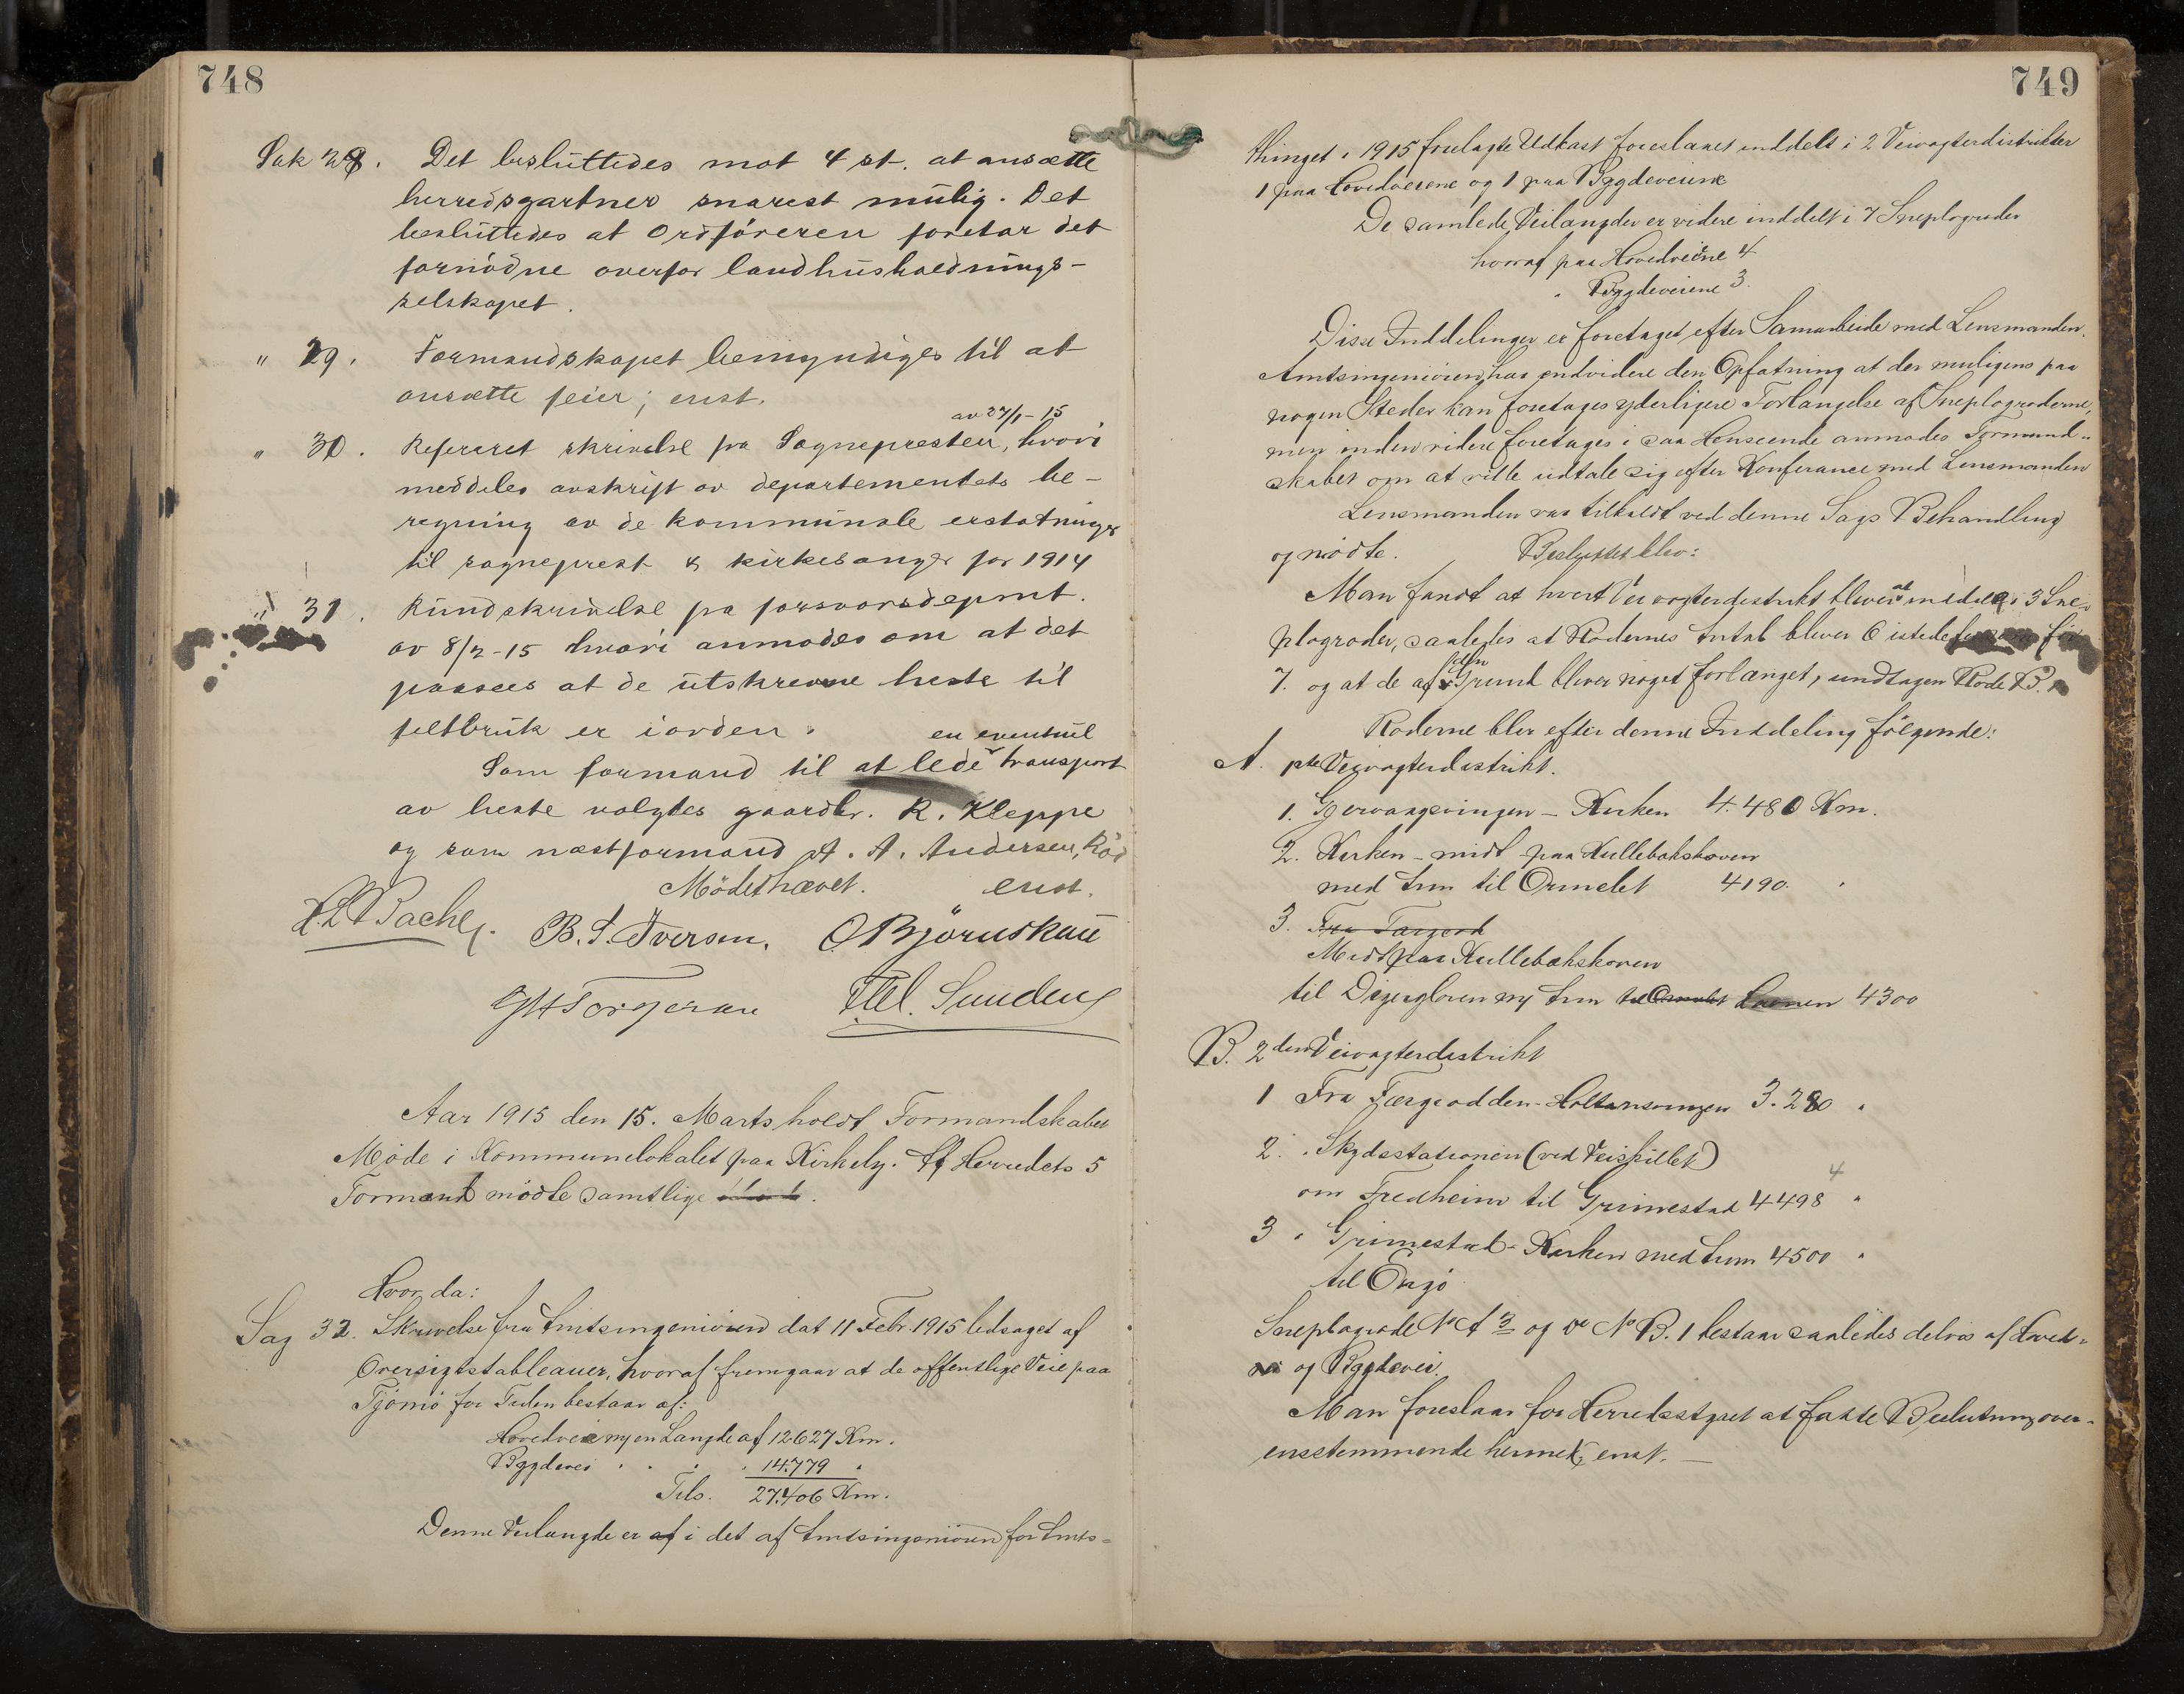 748
Sak 28. Det besluttedes mot 4 st. at ansætte
herredsgartner snarest mulig. Det
besluttedes at Ordføreren foretar det
fornødne overfor landhusholdnings-
selskapet.
" 29. Formandskapet bemyndiges til at
ansætte feier; enst.
av 27/1-15
" 30. Refereret skrivelse fra Sognepresten, hvori
meddeles avskrift av departementets be-
regning av de kommunale erstatninger
til sogneprest & kirkesanger for 1914
" 31. Rundskrivelse fra forsvarsdepmt.
av 8/2-15 hvori anmodes om at det
paasees at de utskrevne heste til
feltbruk er iorden.
en eventuel
Som formand til at lede transport
av heste valgtes gaardbr. R. Kleppe
og som næstformand A. A. Andersen, Rød
Mödet hævet. enst.
B. S. Iversen. O Bjørnskau
Aar 1915 den 15. Marts holdt Formandskabet
Møde i Kommunelokalet paa Kirkely. Af Herredets 5
Formænd mødte samtlige
Hvor da:
Sag 32. Skrivelse fra Amtsingeniøren dat 11 Febr. 1915 ledsaget af
Oversigtstableauer, hvoraf fremgaar at de offentlige Veie paa
Tjømø for Tiden bestaar af:
Hovedvei en Længde af 12.627 Km.
Bygdevei " " " 14.779 "
Tils. 27.406 Km.
Denne Veilængde er af i det af Amtsingeniøren for Amts-
749
thinget i 1915 forelagte Udkast foreslaaet inddelt i 2 Veivogterdistrikter
1 paa Hovedveiene og 1 paa Bygdeveiene
De samlede Veilængder er videre inddelt i 7 Sneplogroder
hvoraf paa Hovedveiene 4
" Bygdeveiene 3.
Disse Inddelinger er foretaget efter Samarbeide med Lensmanden.
Amtsingeniøren har endvidere den Opfatning at der muligens paa
nogen Steder kan foretages yderligere Forlængelse af Sneplogroderne,
men inden videre foretages i saa Henseende anmodes Formand-
skabet om at ville udtale sig efter Konferance med Lensmanden
Lensmanden var tilkaldt ved denne Sags Behandling
og mødte. Besluttet blev:
Man fandt at hvert Veivogterdistrikt blever at inddele i 3 Sne-
plogroder, saaledes at Rodernes Antal bliver 6 istedetfor
7. og at de af Grund bliver noget forlænget, undtagen Rode B. 1
Roderne blir efter denne Inddeling følgende:
A. 1ste Veivogterdistrikt.
1. Gjervaagsvingen - Kirken 4.480 Km.
2. Kirken - midt paa Kullebakskoven
med Arm til Ormelet 4190. "
3. Fra
Midt paa Kullebakskoven
til Arm til Ormelet 4300
B. 2den Veivogterdistrikt
1 Fra Færgeodden - Holtansvingen 3.280 "
2. " Skydsstationen (ved Veiskillet)
4
om Fredheim til Grimestad 4498 "
3 " Grimestad - Kirken med Arm 4500 "
til Engø
Sneplogrode No A 3 og do No B. 1 bestaar saaledes delvis af Hoved-
vei og Bygdevei.
Man foreslaar for Herredsstyret at fatte Beslutning over-
ensstemmende hermed, enst. —